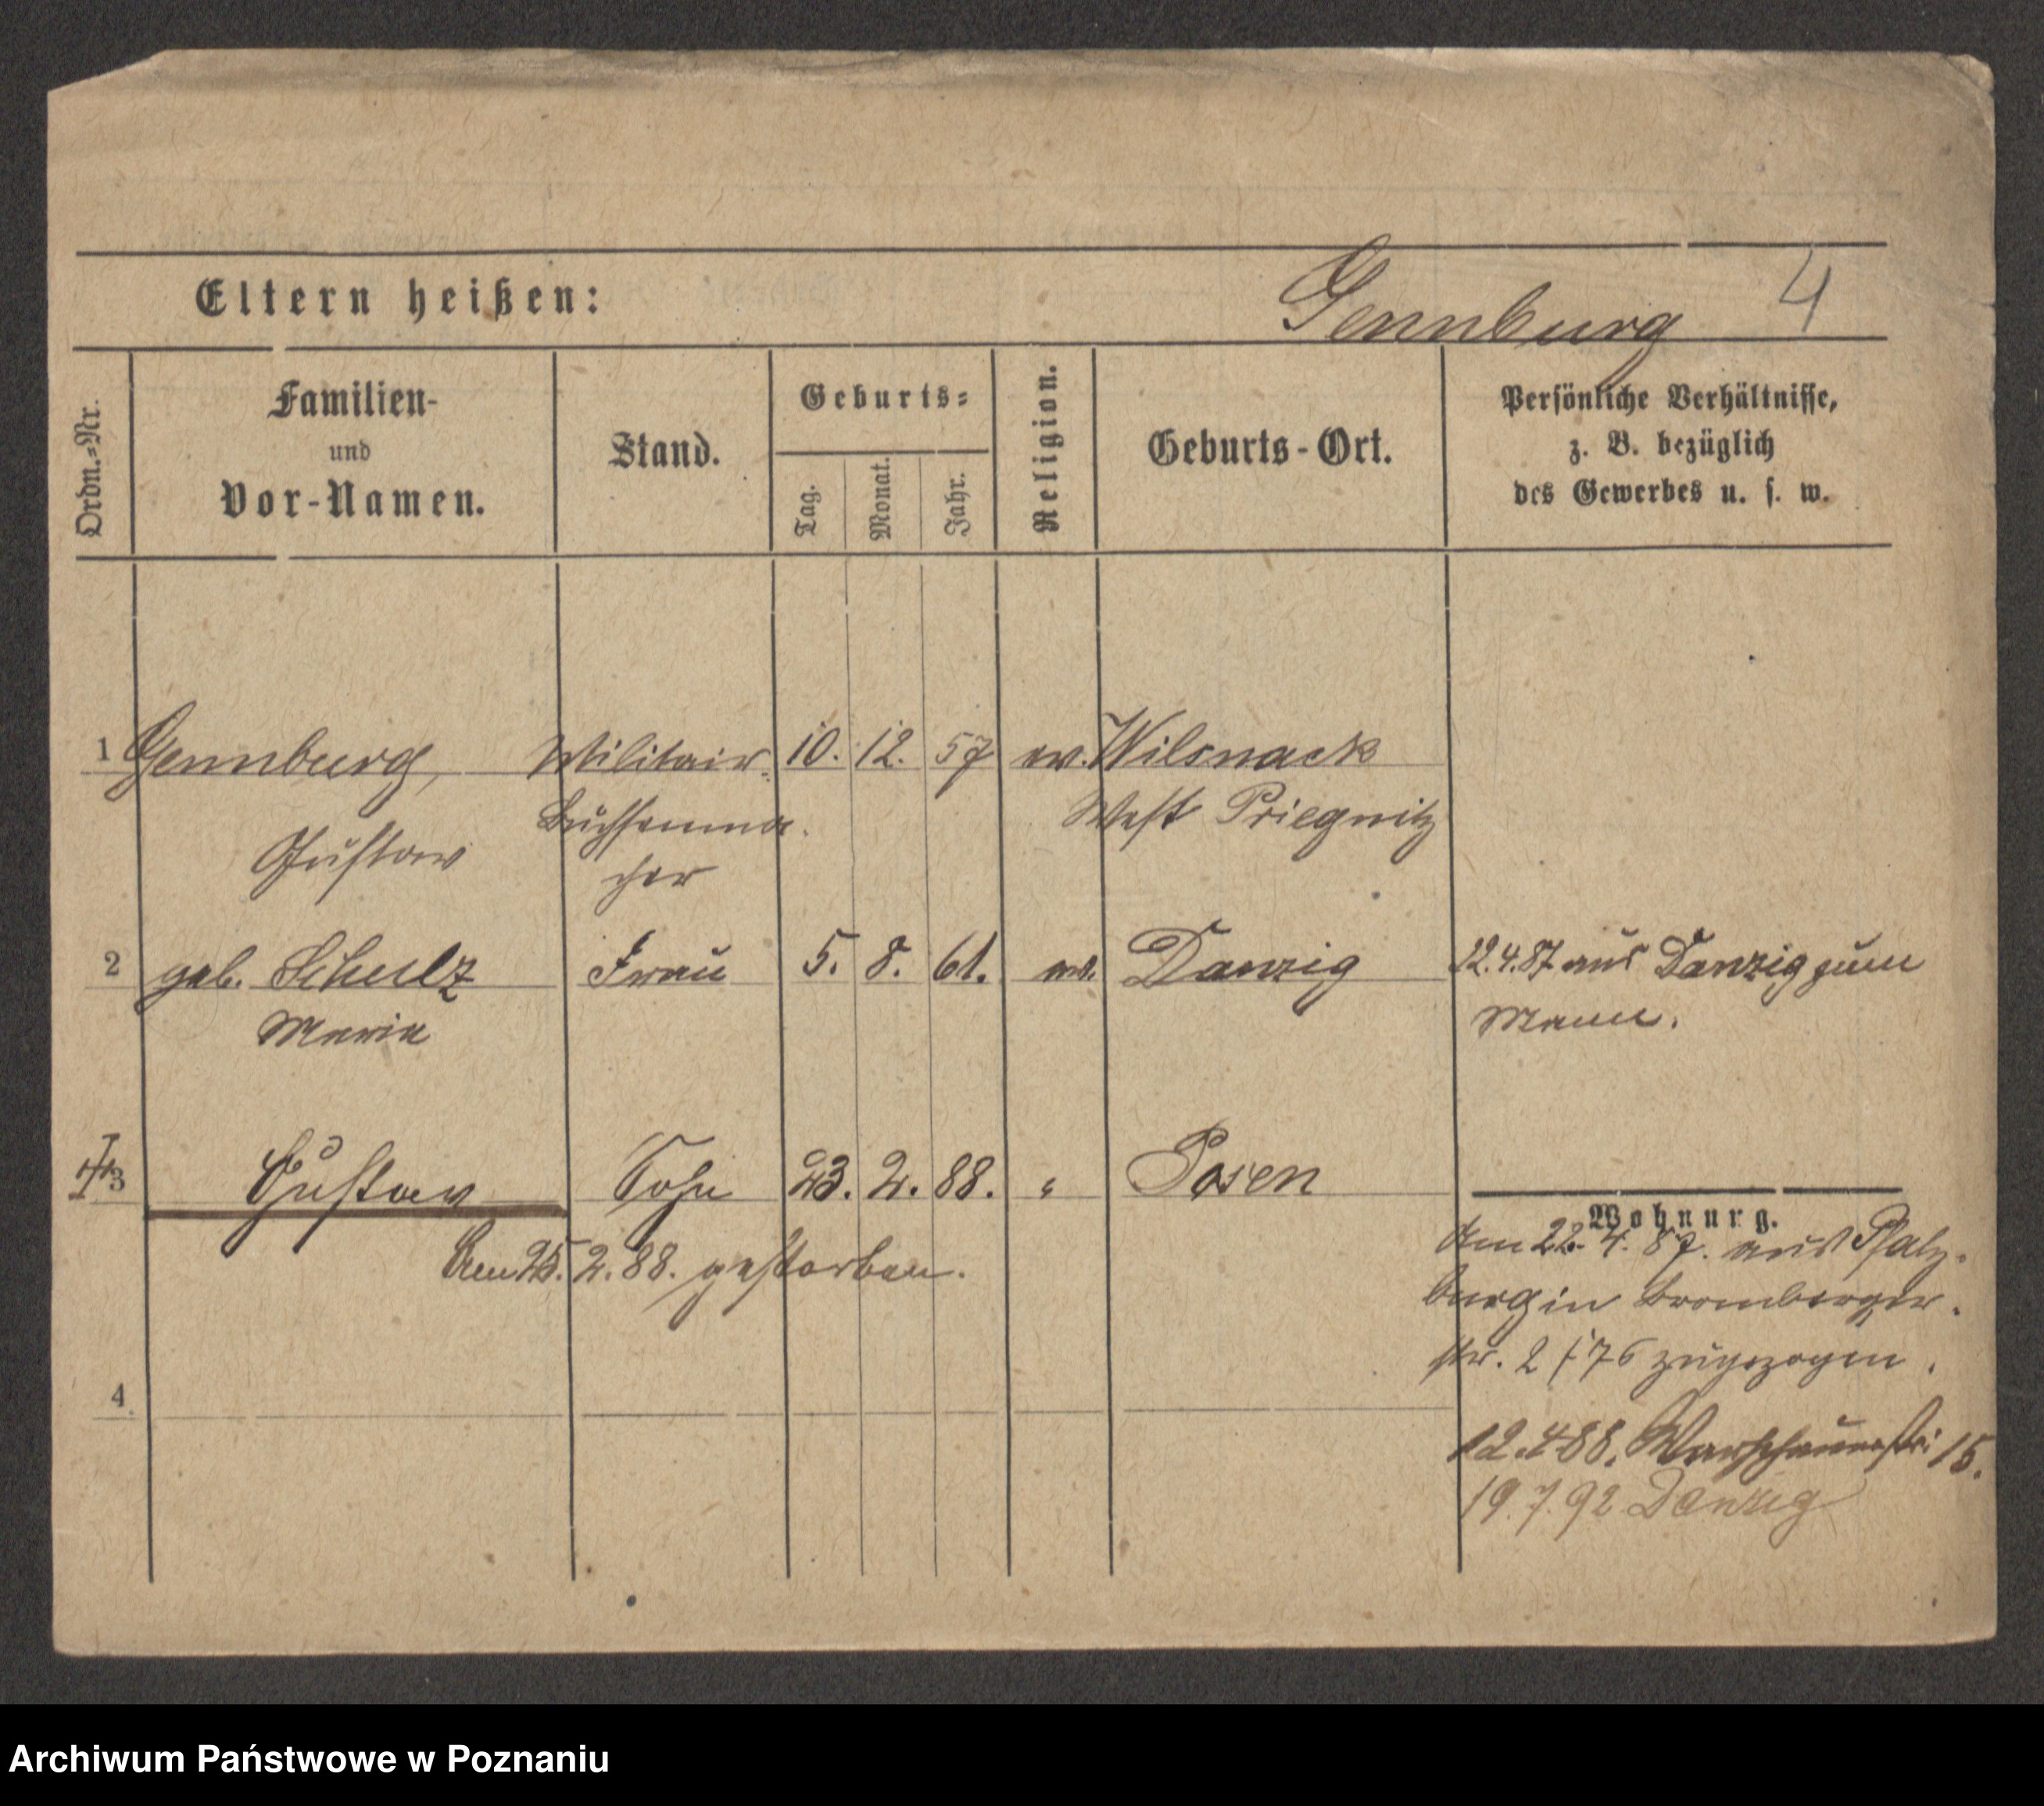 Eltern heißen: Gennburg 4
Ordn.-Nr. Familien- und Vor-Namen. Stand. Geburts- Tag. Monat. Jahr. Religion. Geburts-Ort. Persönliche Verhältnisse, z. B. bezüglich des Gewerbes u. s. w.
1 Gennburg, Militair- 10. 12. 57 ev. Wilsnack
Büchsenma- West Priegnitz
Gustav
cher
2 geb. Schulz Frau 5. 8. 61. ev. Danzig 22.4.87 aus Danzig zum
Maria Mann.
3 Gustav Sohn 23. 2. 88. " Posen
Wohnung.
Am 25. 2. 88. gestorben. Am 22. 4. 87. aus Pfalz-
burg in Bromberger-
str. 2 / 76 zugezogen.
4. 12.4.88. Warschauerstr. 15.
19.7.92 Danzig
Archiwum Państwowe w Poznaniu